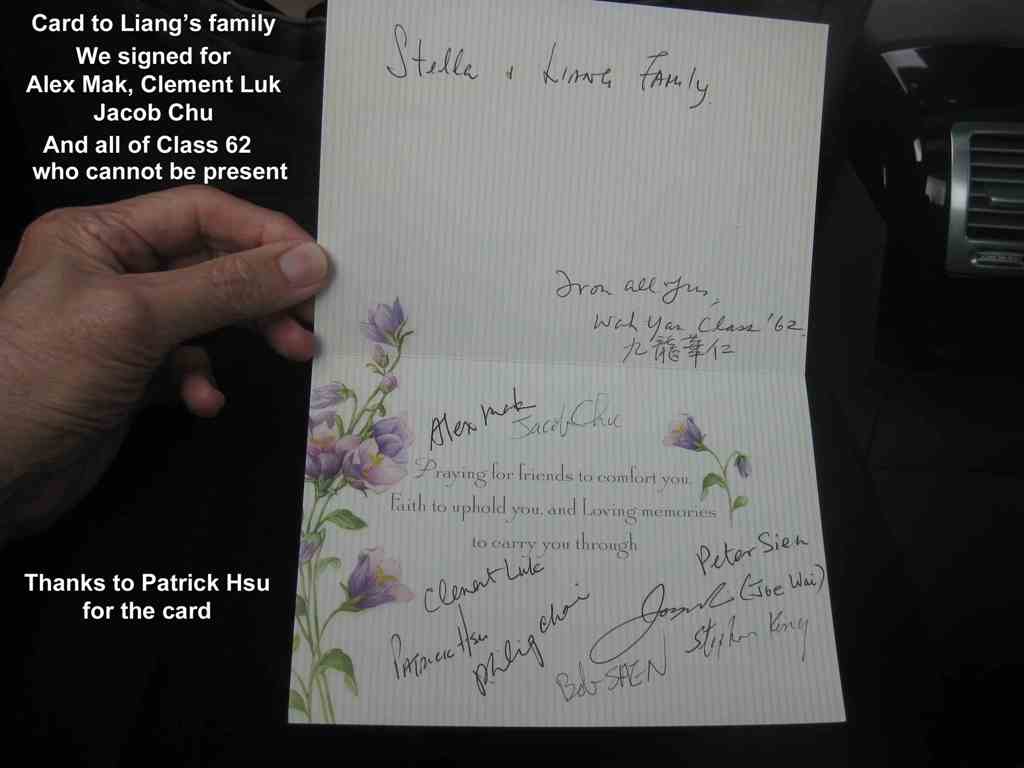 Card to Liang's family
We signed for
Alex Mak, Clement Luk
Jacob Chu
And all of Class 62
who cannot be present
Stella & Liang Family.
From all of us,
Wah Yan Class '62
九龍華仁
Alex Mak
Jacob Chu
Praying for friends to comfort you,
Faith to uphold you, and Loving memories
to carry you through
Peter Sien
Clement Luk
(Joe Wai)
Patrick Hsu
Philip Choi
Stephen Kong
Bob SAEN
Thanks to Patrick Hsu
for the card